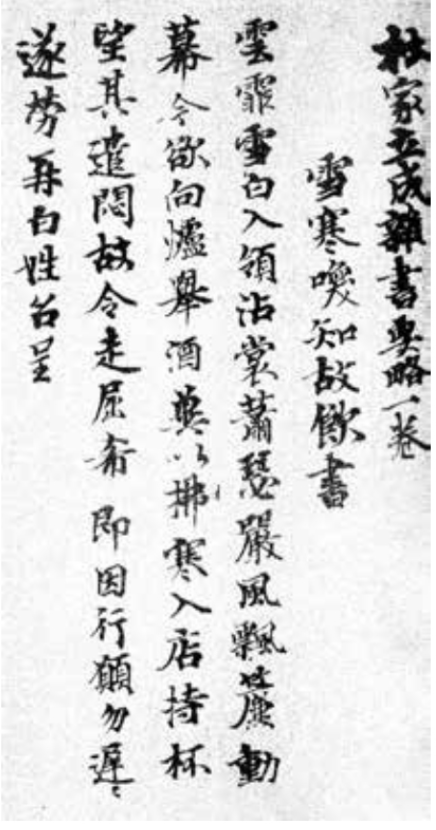 杜家立成雜書要略一卷
雪寒喚知故飲書
雲霏雪白入領沾裳蕭瑟嚴風飄塵動
幕令欲向爐舉酒冀以拂寒入店持杯
望其遣悶故令走屈希即因行願勿遲〻
遂勞再白姓名呈